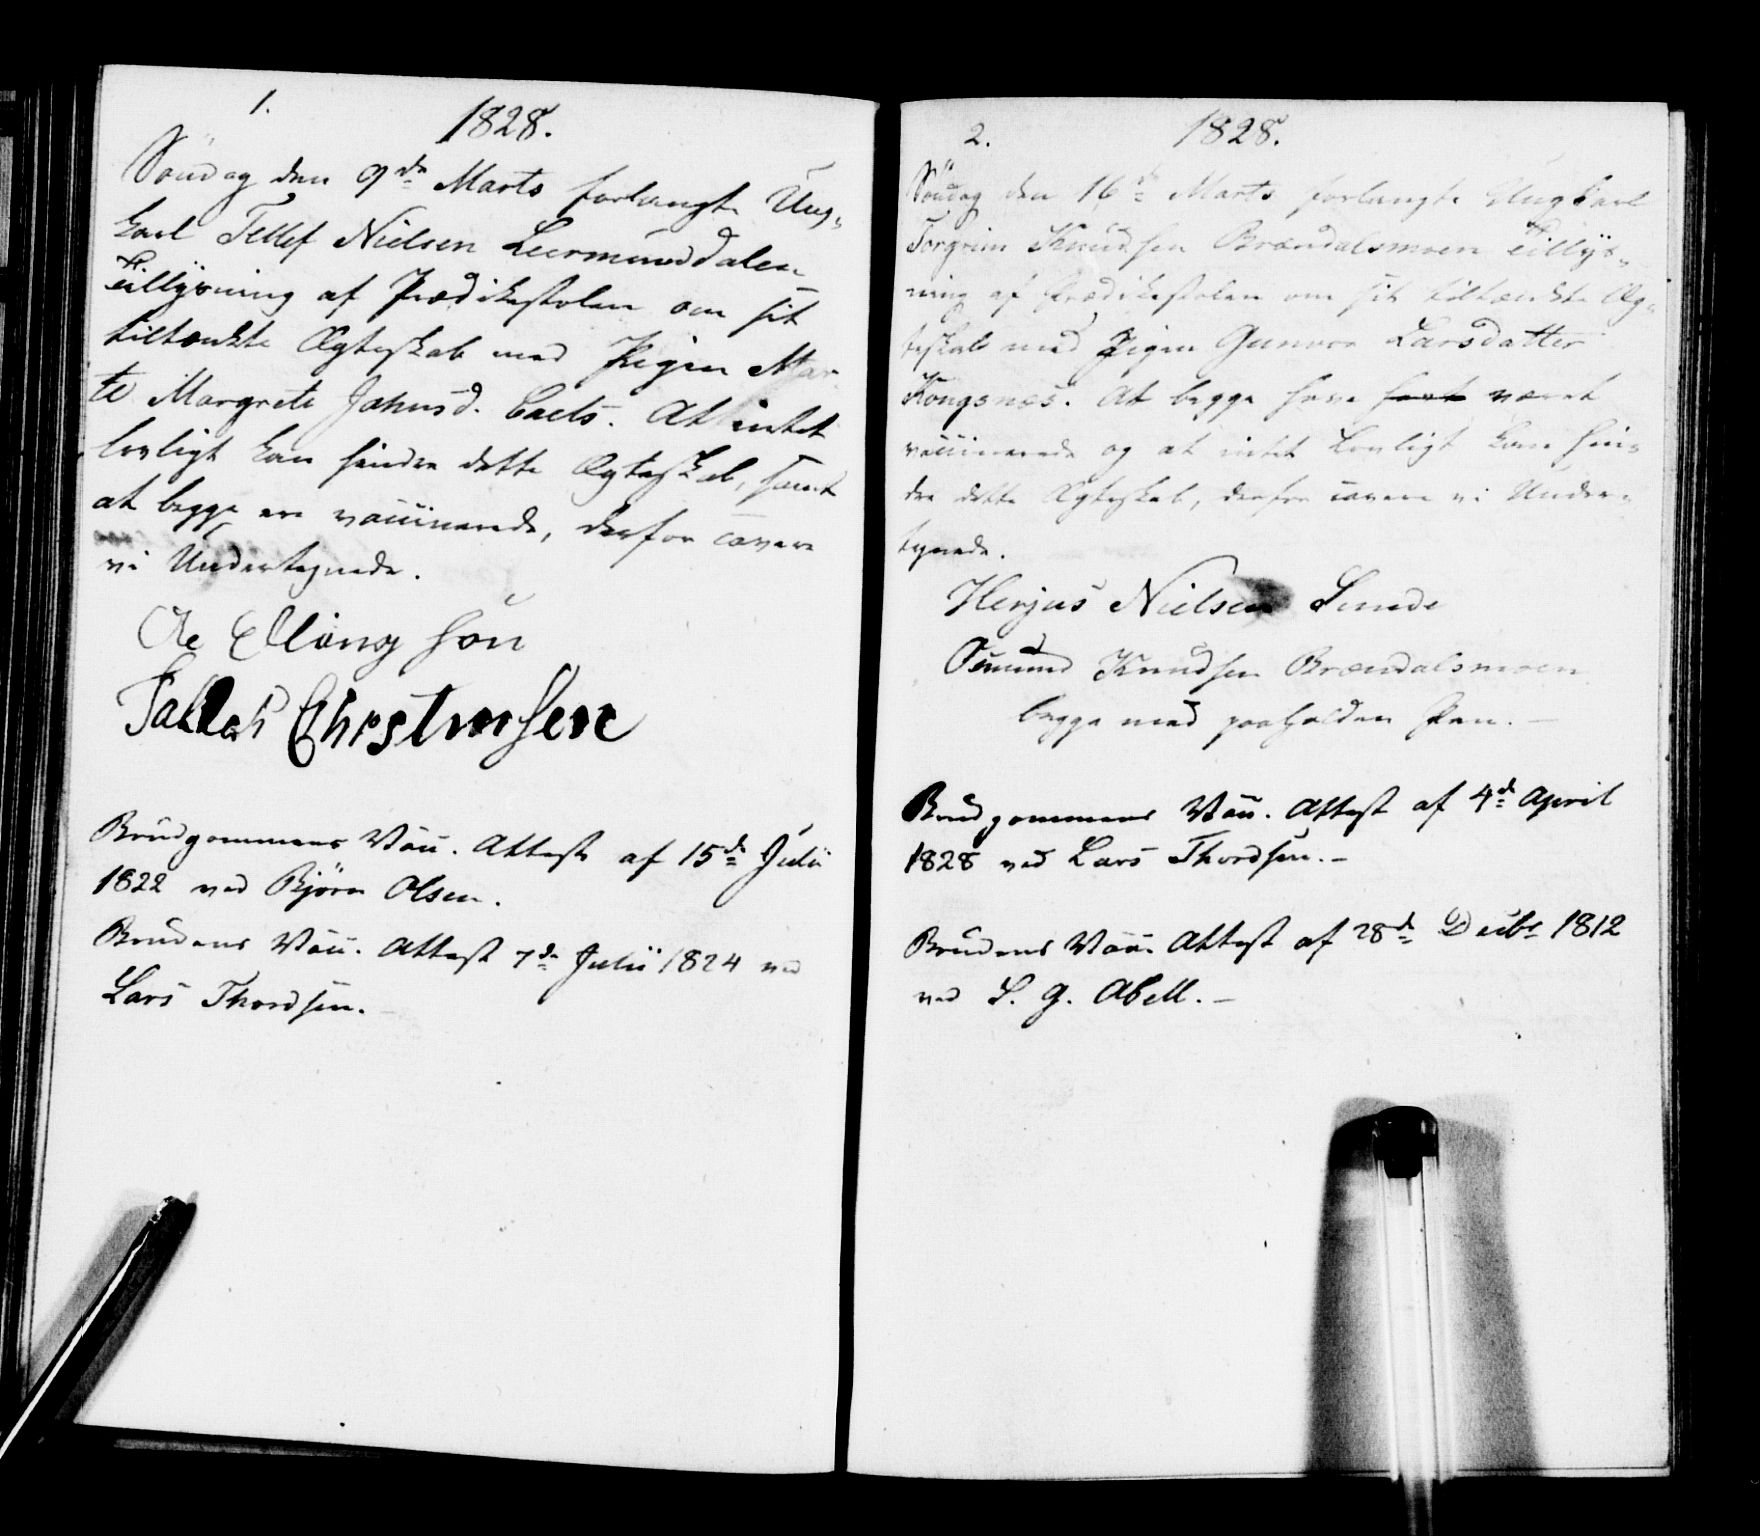 1.
1828.
Søndag den 9de Marts forlangte Ung-
karl Tellef Nielsen Leermunddalen
Tillysning af Prædikestolen om sit
tiltænkte Ægteskab med Pigen Mar-
te Margrete Jahnsd. At intet
lovligt kan hindre dette Ægteskab, samt
at begge ere vaccinerede, derfor cavere
vi Undertegnede.
Ole Elling søn
Tallak Chrstensen
Brudgommens Vacc. Attest af 15de Julii
1822 ved Bjørn Olsen.
Brudens Vacc. Attest 7de Julii 1824 ved
Lars Thordsen.
2.
1828.
Søndag den 16de Marts forlangte Ungkarl
Torgrim Knudsen Brændalsmoen Tillys-
ning af Prædikestolen om sit tiltænkte Æg-
teskab med Pigen Gunvor Larsdatter
Kongsnæs. At begge have været
vaccinerede og at intet lovligt kan hin-
dre dette Ægteskab, derfor cavere vi Under-
tegnede.
Herjus Nielsen Sunde
Osmund Knudsen Brændalsmoen
begge med paaholden Pen. –
Brudgommens Vacc. Attest af 4de April
1828 ved Lars Thordsen. –
Brudens Vacc. Attest af 28de Decbr 1812
ved S. G. Abell. –